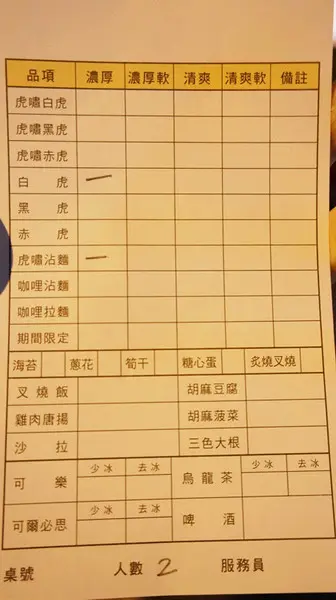 品項 濃厚 濃厚軟 清爽 清爽軟 備註
虎嘯白虎
虎嘯黑虎
虎嘯赤虎
白虎 一
黑虎
赤虎
虎嘯沾麵 一
咖哩沾麵
咖哩拉麵
期間限定
海苔 蔥花 筍干 糖心蛋 炙燒叉燒
叉燒飯 胡麻豆腐
雞肉唐揚 胡麻菠菜
沙拉 三色大根
可樂 少冰 去冰 烏龍茶 少冰 去冰
可爾必思 少冰 去冰 啤酒
桌號 人數 2 服務員